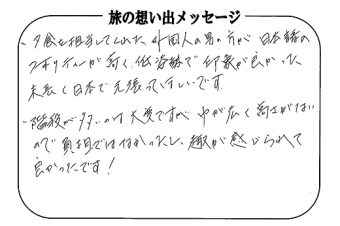 旅の想い出メッセージ
・夕食を担当してくれた、外国人の男の方が日本語の
クオリティーが高く、低姿勢で印象が良かった
末広く日本で元張ってほしいです。
・階段が多いのは大変ですが、中が広く高さがない
ので負担ではなかったし、趣が感じられて
良かったです!